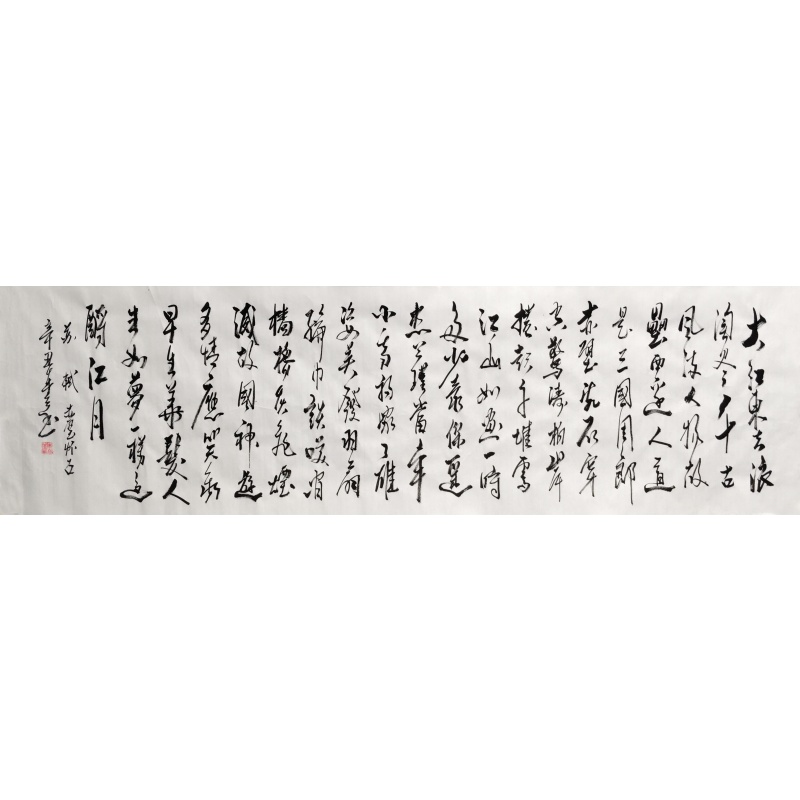 大江東去浪
淘尽千古
風流人物故
壘西邊人道
是三國周郎
赤壁乱石穿
空驚濤拍岸
捲起千堆雪
江山如画一時
多少豪傑遥
想公瑾當年
小喬初嫁了雄
姿英發羽扇
綸巾談笑间
檣櫓灰飛煙
滅故國神遊
多情應笑我
早生華髮人
生如夢一樽还
酹江月
苏軾赤壁怀古